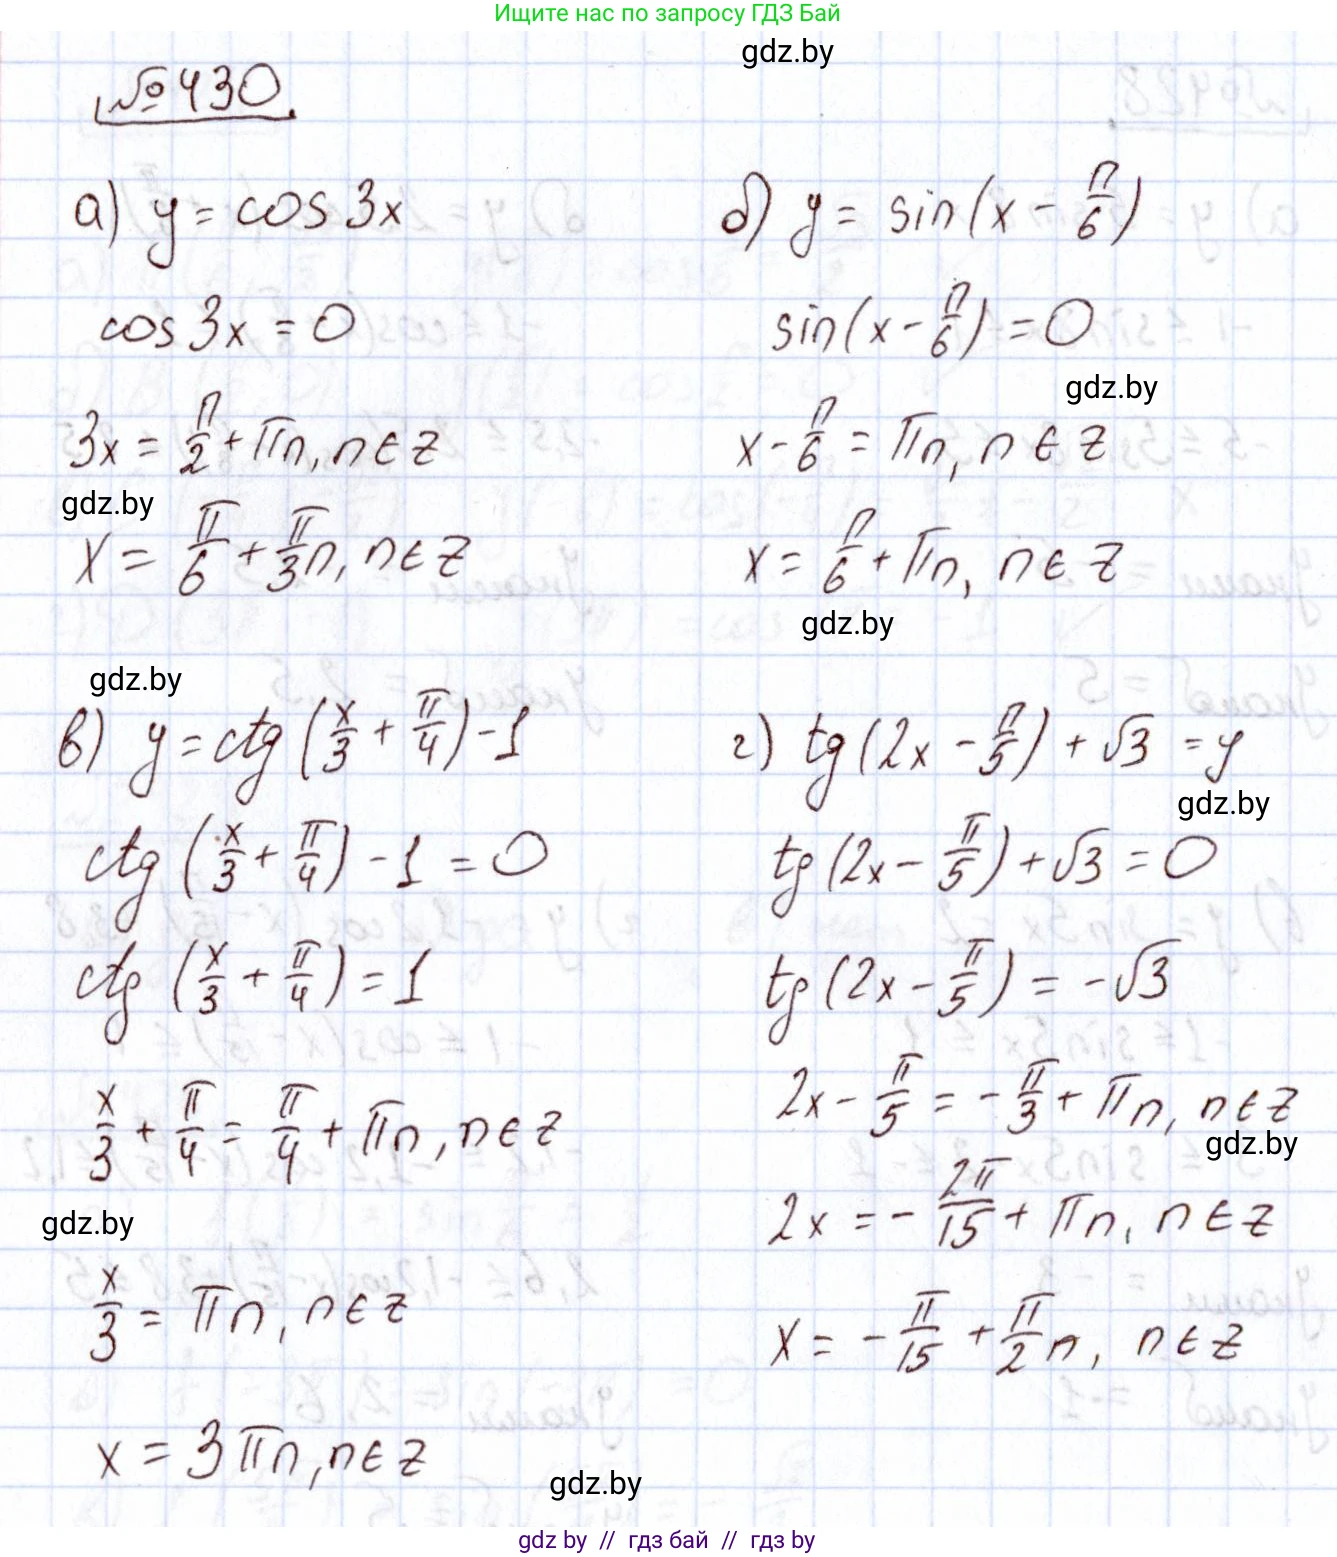 Ищите нас по запросу ГДЗ Бай
gdz.by
№430
а) y = cos 3x
cos 3x = 0
3x = π/2 + πn, n ∈ z
gdz.by
x = π/6 + π/3 n, n ∈ z
б) y = sin(x - π/6)
sin(x - π/6) = 0
gdz.by
x - π/6 = πn, n ∈ z
x = π/6 + πn, n ∈ z
gdz.by
gdz.by
в) y = ctg(x/3 + π/4) - 1
ctg(x/3 + π/4) - 1 = 0
ctg(x/3 + π/4) = 1
x/3 + π/4 = π/4 + πn, n ∈ z
gdz.by
x/3 = πn, n ∈ z
x = 3πn, n ∈ z
г) tg(2x - π/5) + √3 = y
gdz.by
tg(2x - π/5) + √3 = 0
tg(2x - π/5) = -√3
2x - π/5 = -π/3 + πn, n ∈ z
gdz.by
2x = -2π/15 + πn, n ∈ z
x = -π/15 + π/2 n, n ∈ z
gdz.by
gdz by // гдз бай // гдз by